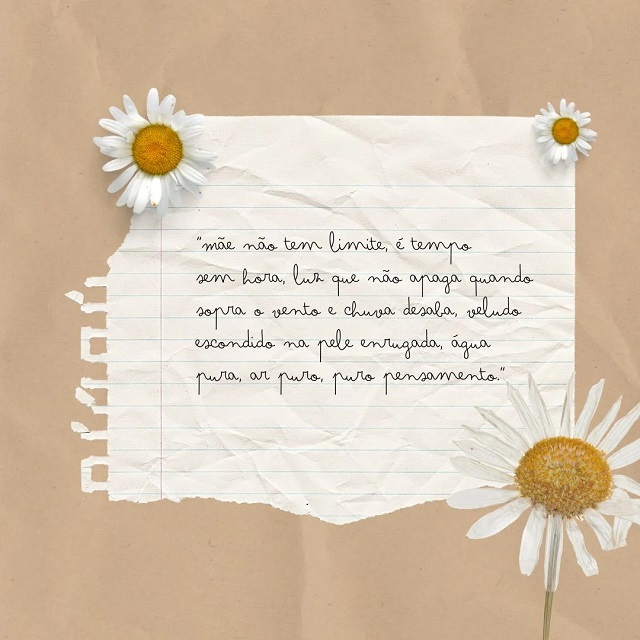 "mãe não tem limite, é tempo
sem hora, luz que não apaga quando
sopra o vento e chuva desaba, veludo
escondido na pele enrugada, água
pura, ar puro, puro pensamento."